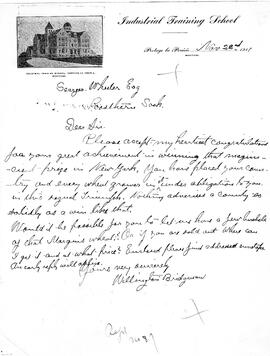 Industrial Training School
Portage la Prairie, Nov 22nd 1911
Seager Wheeler Esq
Rosthern Sask.
Dear Sir
Please accept my heartiest congratulations
for your great achievement in winning that magnifi-
cent prize in New York. You have placed your coun-
try and every wheat grower in under obligations to you
in this signal triumph. Nothing advertises a country so
solidly as a win like that.
Would it be possible for you to let me have a few bushels
of that Marquis wheat? Or if you are sold out where can
I get it and at what price? Enclosed please find addressed envelope
An early reply will oblige.
Yours very sincerely
Wellington Bridgman